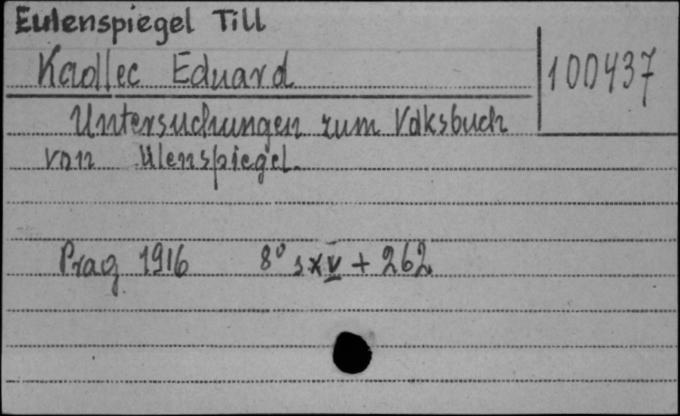 Eulenspiegel Till
Kadlec Eduard
100437
Untersuchungen zum Volksbuch
von Ulenspiegel.
Prag 1916 8° s XV + 262